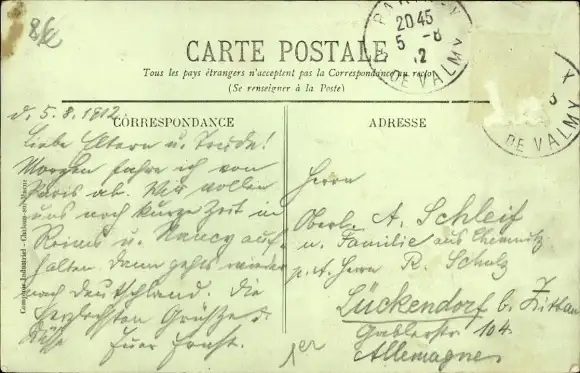 8/2
CARTE POSTALE
Tous les pays étrangers n'acceptent pas la Correspondance au recto
(Se renseigner à la Poste)
PARIS X
20 45
5 -8
12
DE VALMY
X
DE VALMY
CORRESPONDANCE
d. 5. 8. 1912.
Liebe Eltern u. Trude!
Morgen fahre ich von
Paris ab. Wir wollen
uns noch kurze Zeit in
Reims u. Nancy auf-
halten. Dann gehts wieder
nach Deutschland. Die
herzlichsten Grüße u.
Küße Euer Ernst.
ADRESSE
Herrn
Oberl. A. Schleif
u. Familie aus Chemnitz
p. A. Herrn R. Scholz
Lückendorf b. Zittau
Gablerstr 104
Allemagne